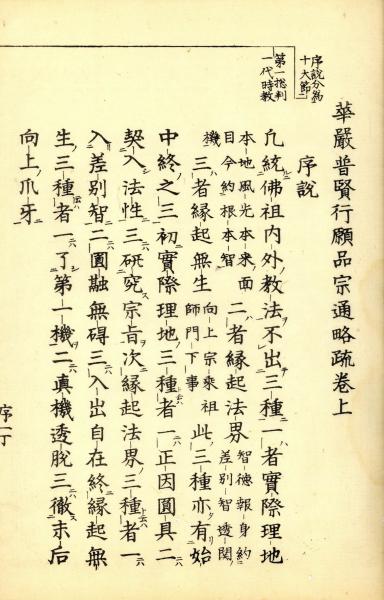 華嚴普賢行願品宗通略疏卷上
序說分為
十大節
序說
第一揔判
一代時教
凢統佛祖內外教法不出三種一者實際理地
本地風光本來面目今約根本智二者緣起法界智德報身約差別智透關
機三者緣起無生向上宗乘祖師門下事此三種亦有始
中終之三初實際理地三種者一正因圓具二
契入法性三研究宗旨次緣起法界三種者一
入差別智二圓融無碍三入出自在終緣起無
生三種者一了第一機二真機透脫三徹末后
向上爪牙
序一丁